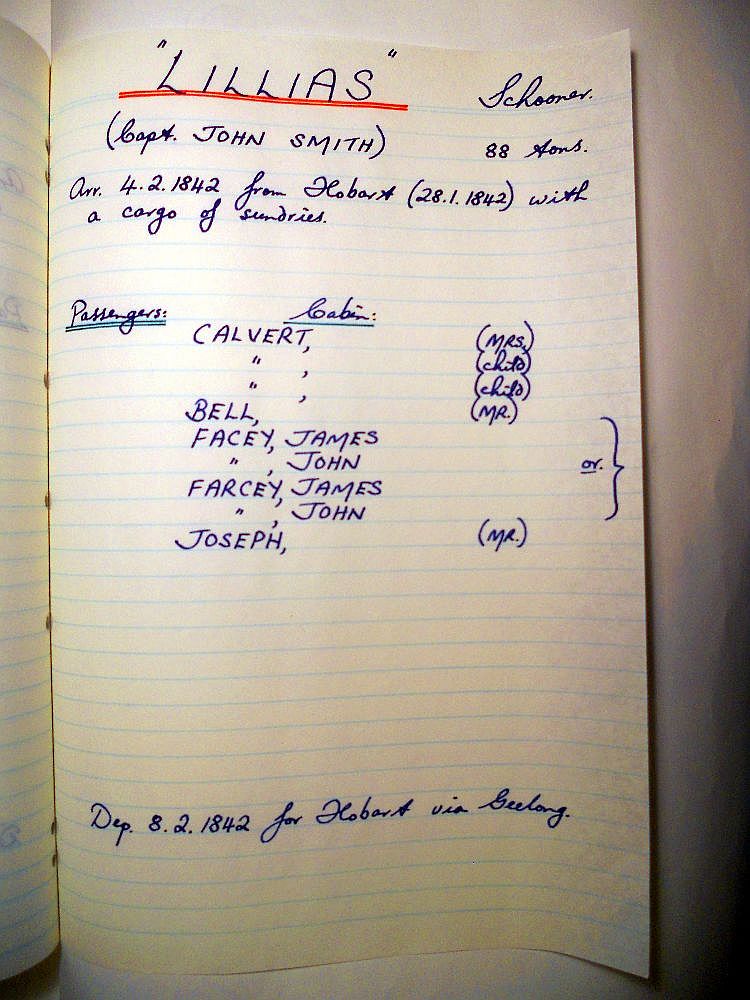 "LILLIAS" Schooner.
(Capt. JOHN SMITH) 88 tons.
Arr. 4.2.1842 from Hobart (28.1.1842) with
a cargo of sundries.
Passengers: Cabin:
CALVERT, (MRS.)
" , (child)
" , (child)
BELL, (MR.)
FACEY, JAMES
" , JOHN or.
FARCEY, JAMES
" , JOHN
JOSEPH, (MR.)
Dep. 8.2.1842 for Hobart via Geelong.